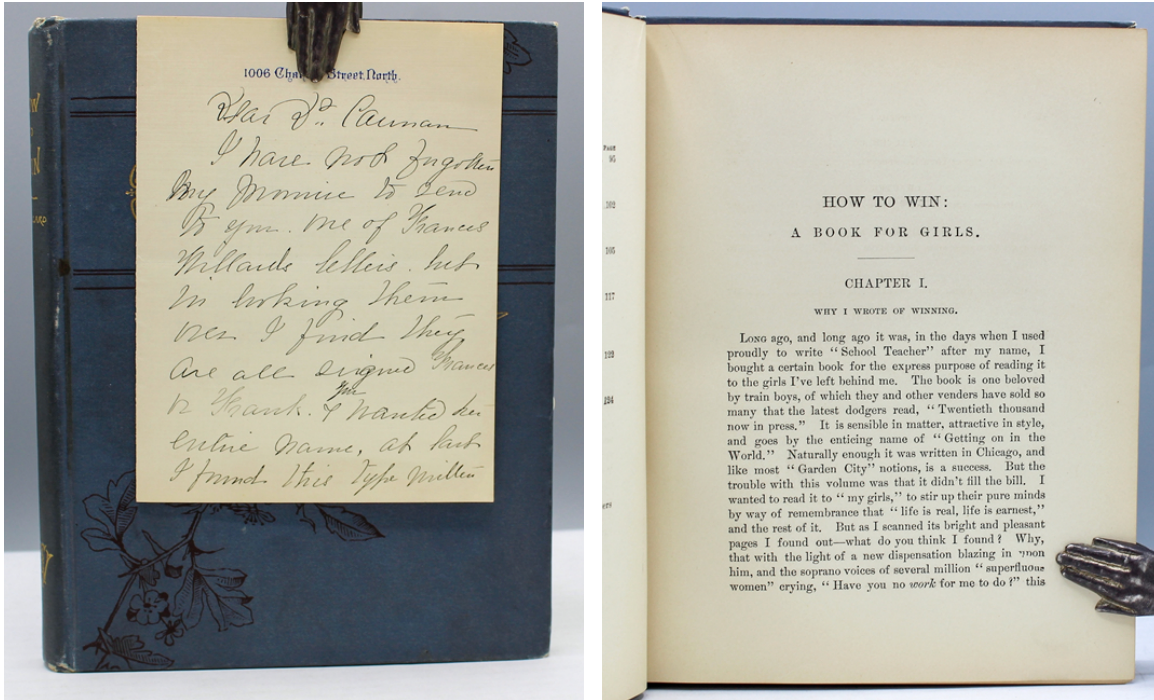 1006 Cha Street North.
Dear Dr. Cauman
I have not forgotten
my promise to send
to you. one of Frances
Willards letters. but
in looking them
over I find they
are all signed Frances
or Frank. You
& wanted her
entire name, at last
I found this type written
PAGE
95
102
105
117
122
124
HOW TO WIN:
A BOOK FOR GIRLS.
CHAPTER I.
WHY I WROTE OF WINNING.
Long ago, and long ago it was, in the days when I used
proudly to write “School Teacher” after my name, I
bought a certain book for the express purpose of reading it
to the girls I've left behind me. The book is one beloved
by train boys, of which they and other venders have sold so
many that the latest dodgers read, “Twentieth thousand
now in press.” It is sensible in matter, attractive in style,
and goes by the enticing name of “Getting on in the
World.” Naturally enough it was written in Chicago, and
like most “Garden City” notions, is a success. But the
trouble with this volume was that it didn't fill the bill. I
wanted to read it to “my girls,” to stir up their pure minds
by way of remembrance that “life is real, life is earnest,”
and the rest of it. But as I scanned its bright and pleasant
pages I found out—what do you think I found? Why,
that with the light of a new dispensation blazing in upon
him, and the soprano voices of several million “superfluous
women” crying, “Have you no work for me to do?” this